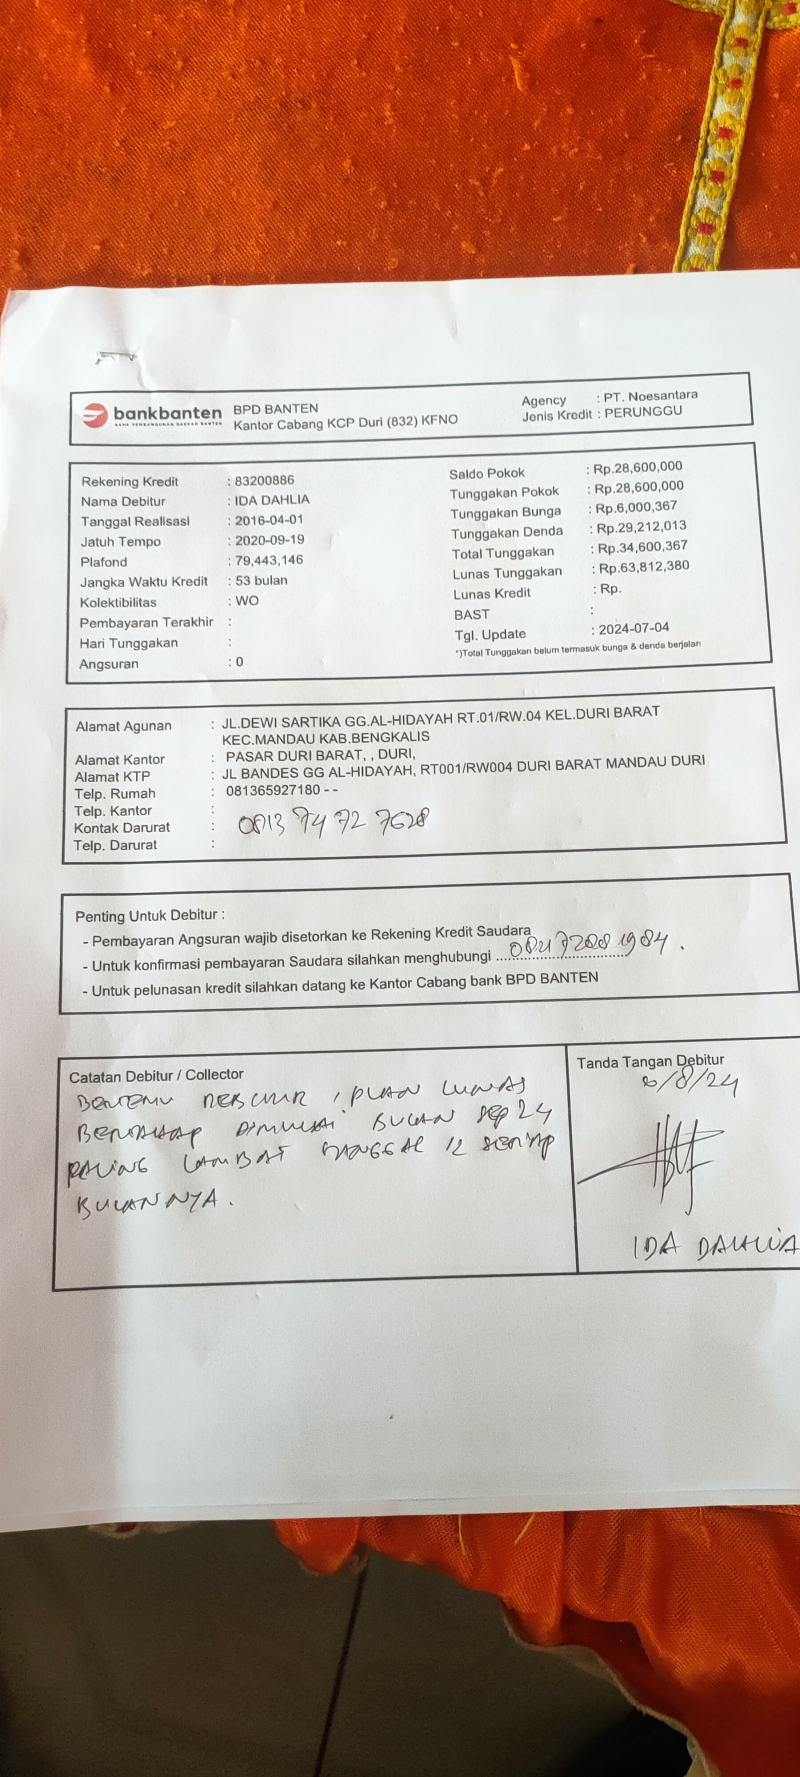 bankbanten
BPD BANTEN
Kantor Cabang KCP Duri (832) KFNO
Agency : PT. Noesantara
Jenis Kredit : PERUNGGU
Rekening Kredit : 83200886
Nama Debitur : IDA DAHLIA
Tanggal Realisasi : 2016-04-01
Jatuh Tempo : 2020-09-19
Plafond : 79,443,146
Jangka Waktu Kredit : 53 bulan
Kolektibilitas : WO
Pembayaran Terakhir :
Hari Tunggakan :
Angsuran : 0
Saldo Pokok : Rp.28,600,000
Tunggakan Pokok : Rp.28,600,000
Tunggakan Bunga : Rp.6,000,367
Tunggakan Denda : Rp.29,212,013
Total Tunggakan : Rp.34,600,367
Lunas Tunggakan : Rp.63,812,380
Lunas Kredit : Rp.
BAST :
Tgl. Update : 2024-07-04
*)Total Tunggakan belum termasuk bunga & denda berjalan
Alamat Agunan : JL.DEWI SARTIKA GG.AL-HIDAYAH RT.01/RW.04 KEL.DURI BARAT
KEC.MANDAU KAB.BENGKALIS
Alamat Kantor : PASAR DURI BARAT, , DURI,
Alamat KTP : JL BANDES GG AL-HIDAYAH, RT001/RW004 DURI BARAT MANDAU DURI
Telp. Rumah : 081365927180 - -
Telp. Kantor :
Kontak Darurat : 0813 7472 7628
Telp. Darurat :
Penting Untuk Debitur :
- Pembayaran Angsuran wajib disetorkan ke Rekening Kredit Saudara
- Untuk konfirmasi pembayaran Saudara silahkan menghubungi
- Untuk pelunasan kredit silahkan datang ke Kantor Cabang bank BPD BANTEN
Catatan Debitur / Collector
BERTEMU DEBITUR, PLAN LUNAS
BERTAHAP DIMULAI BULAN SEP 24
PALING LAMBAT TANGGAL 12 SETIAP
BULANNYA.
Tanda Tangan Debitur
/8/24
IDA DAHLIA